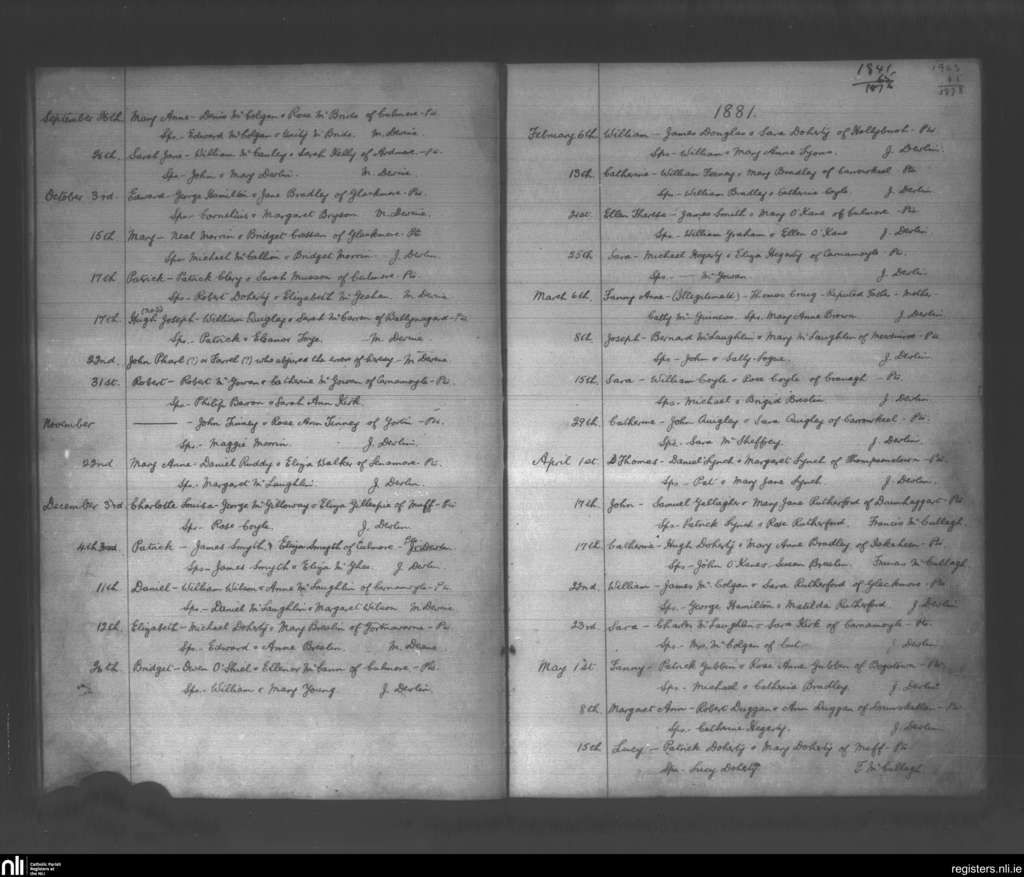 September 26th. Mary Anne - Denis McColgan & Rose McBride of Culmore - Ps.
Sps. - Edward McColgan & Cicily McBride. M. Devine
26th. Sarah Jane - William McCauley & Sarah Kelly of Ardmore - Ps.
Sps - John & Mary Devlin. M. Devine.
October 3rd. Edward - George Hamilton & Jane Bradley of Glackmore - Ps.
Sps - Cornelius & Margaret Bryson M. Devine.
15th. Mary - Neal Morrin & Bridget Cassan of Glackmore - Ps
Sps - Michael McCallion & Bridget Morrin. J. Devlin.
17th. Patrick - Patrick Clery & Sarah Musson of Culmore - Ps.
Sps - Robert Doherty & Elizabeth McGeehan. M. Devine
17th. Hugh Joseph - William Quigley & Sarah McCarron of Ballynagard - Ps
Sps. - Patrick & Eleanor Foye. - M. Devine
22nd. John Pharl (?) or Farrel (?) who abjured the errors of heresy - M. Devine
31st. Robert - Robert McGowan & Catherine McGowan of Carnamoyle - Ps.
Sps - Philip Baron & Sarah Ann Kirk.
November ——— - John Finney & Rose Ann Finney of - Ps.
Sps. - Maggie Morrin. J. Devlin.
22nd Mary Anne - Daniel Ruddy & Eliza Walker of - Ps
Sps. - Margaret McLaughlin. J. Devlin.
December 3rd. Charlotte Louisa - George McGilloway & Eliza Gillespie of Muff - Ps
Sps - Rose Coyle. J. Devlin
4th Patrick - James Smyth & Eliza Smyth of Culmore - Ps
Sps - James Smyth & Eliza McGhee. J. Devlin.
11th Daniel - William Wilson & Anne McLaughlin of Carnamoyle - Ps.
Sps - Daniel McLaughlin & Margaret Wilson M. Devine
12th. Elizabeth - Michael Doherty & Mary Breslin of - Ps.
Sps - Edward & Anne Breslin. M. Devine.
26th Bridget - Owen O'Shiel & Ellenor McCann of Culmore - Ps.
Sps. - William & Mary Young. J. Devlin.
1841
1903
1881.
February 6th. William - James Douglas & Sara Doherty of Hollybush - Ps
Sps - William & Mary Anne Lyons. J. Devlin.
13th. Catherine - William Feeney & Mary Bradley of Carrowkeel - Ps
Sps - William Bradley & Catherine Coyle J. Devlin
21st. Ellen Theresa - James Smith & Mary O'Kane of Culmore - Ps
Sps - William Graham & Ellen O'Kane J. Devlin.
25th. Sara - Michael Hegarty & Eliza Hegarty of Carnamoyle - Ps
Sps. - — McGowan J. Devlin
March 6th. Fanny Anne - (Illegitimate) - Thomas Craig - Reputed Father - Mother -
Catty McGuiness. Sps. Mary Anne Brown. J. Devlin
8th. Joseph - Bernard McLaughlin & Mary McLaughlin of - Ps
Sps - John & Sally Logue. J. Devlin
15th. Sara - William Coyle & Rose Coyle of - Ps.
Sps. - Michael & Brigid Breslin. J. Devlin.
29th. Catherine - John Quigley & Sara Quigley of Carrowkeel - Ps.
Sps. - Sara McSheffrey. J. Devlin
April 1st. Thomas - Daniel Lynch & Margaret Lynch of Thompsondown - Ps.
Sps - Pat & Mary Jane Lynch. J. Devlin.
17th. John - Samuel Gallagher & Mary Jane Rutherford of Drumhaggart - Ps
Sps - Patrick Lynch & Rose Rutherford. Francis McCullagh.
17th. Catherine - Hugh Doherty & Mary Anne Bradley of Iskaheen - Ps
Sps - John O'Kane & Susan Breslin. Francis McCullagh
22nd. William - James McColgan & Sara Rutherford of Glackmore - Ps
Sps. - George Hamilton & Matilda Rutherford J. Devlin
23rd. Sara - Charles McLaughlin & Sara Kirk of Carnamoyle - Ps.
Sps - Mrs. McColgan of J. Devlin
May 1st Fanny - Patrick Gubbin & Rose Anne Gubbin of - Ps.
Sps. - Michael & Catherine Bradley. J. Devlin
8th. Margaret Ann - Robert Duggan & Ann Duggan of Drumskellan - Ps
Sps - Catherine Hegarty. J. Devlin
15th Lucy - Patrick Doherty & Mary Doherty of Muff - Ps
Sps - Lucy Doherty F. McCullagh
nli
Catholic Parish
Registers at
the NLI
registers.nli.ie